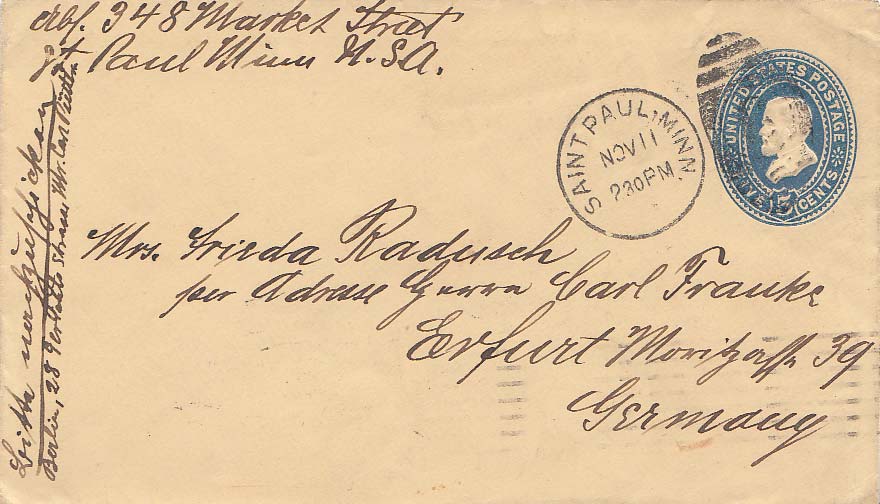 Abs. 348 Market Street
St Paul Minn U.S.A.
UNITED STATES POSTAGE
FIVE CENTS
5
SAINT PAUL, MINN.
NOV 11
230PM
Mrs. Frieda Radusch
per Adresse Herrn Carl Franke
Erfurt Moritzgasse 39
Germany
Bitte nachzuschicken
Berlin, 28 Strasse Wr. Carl